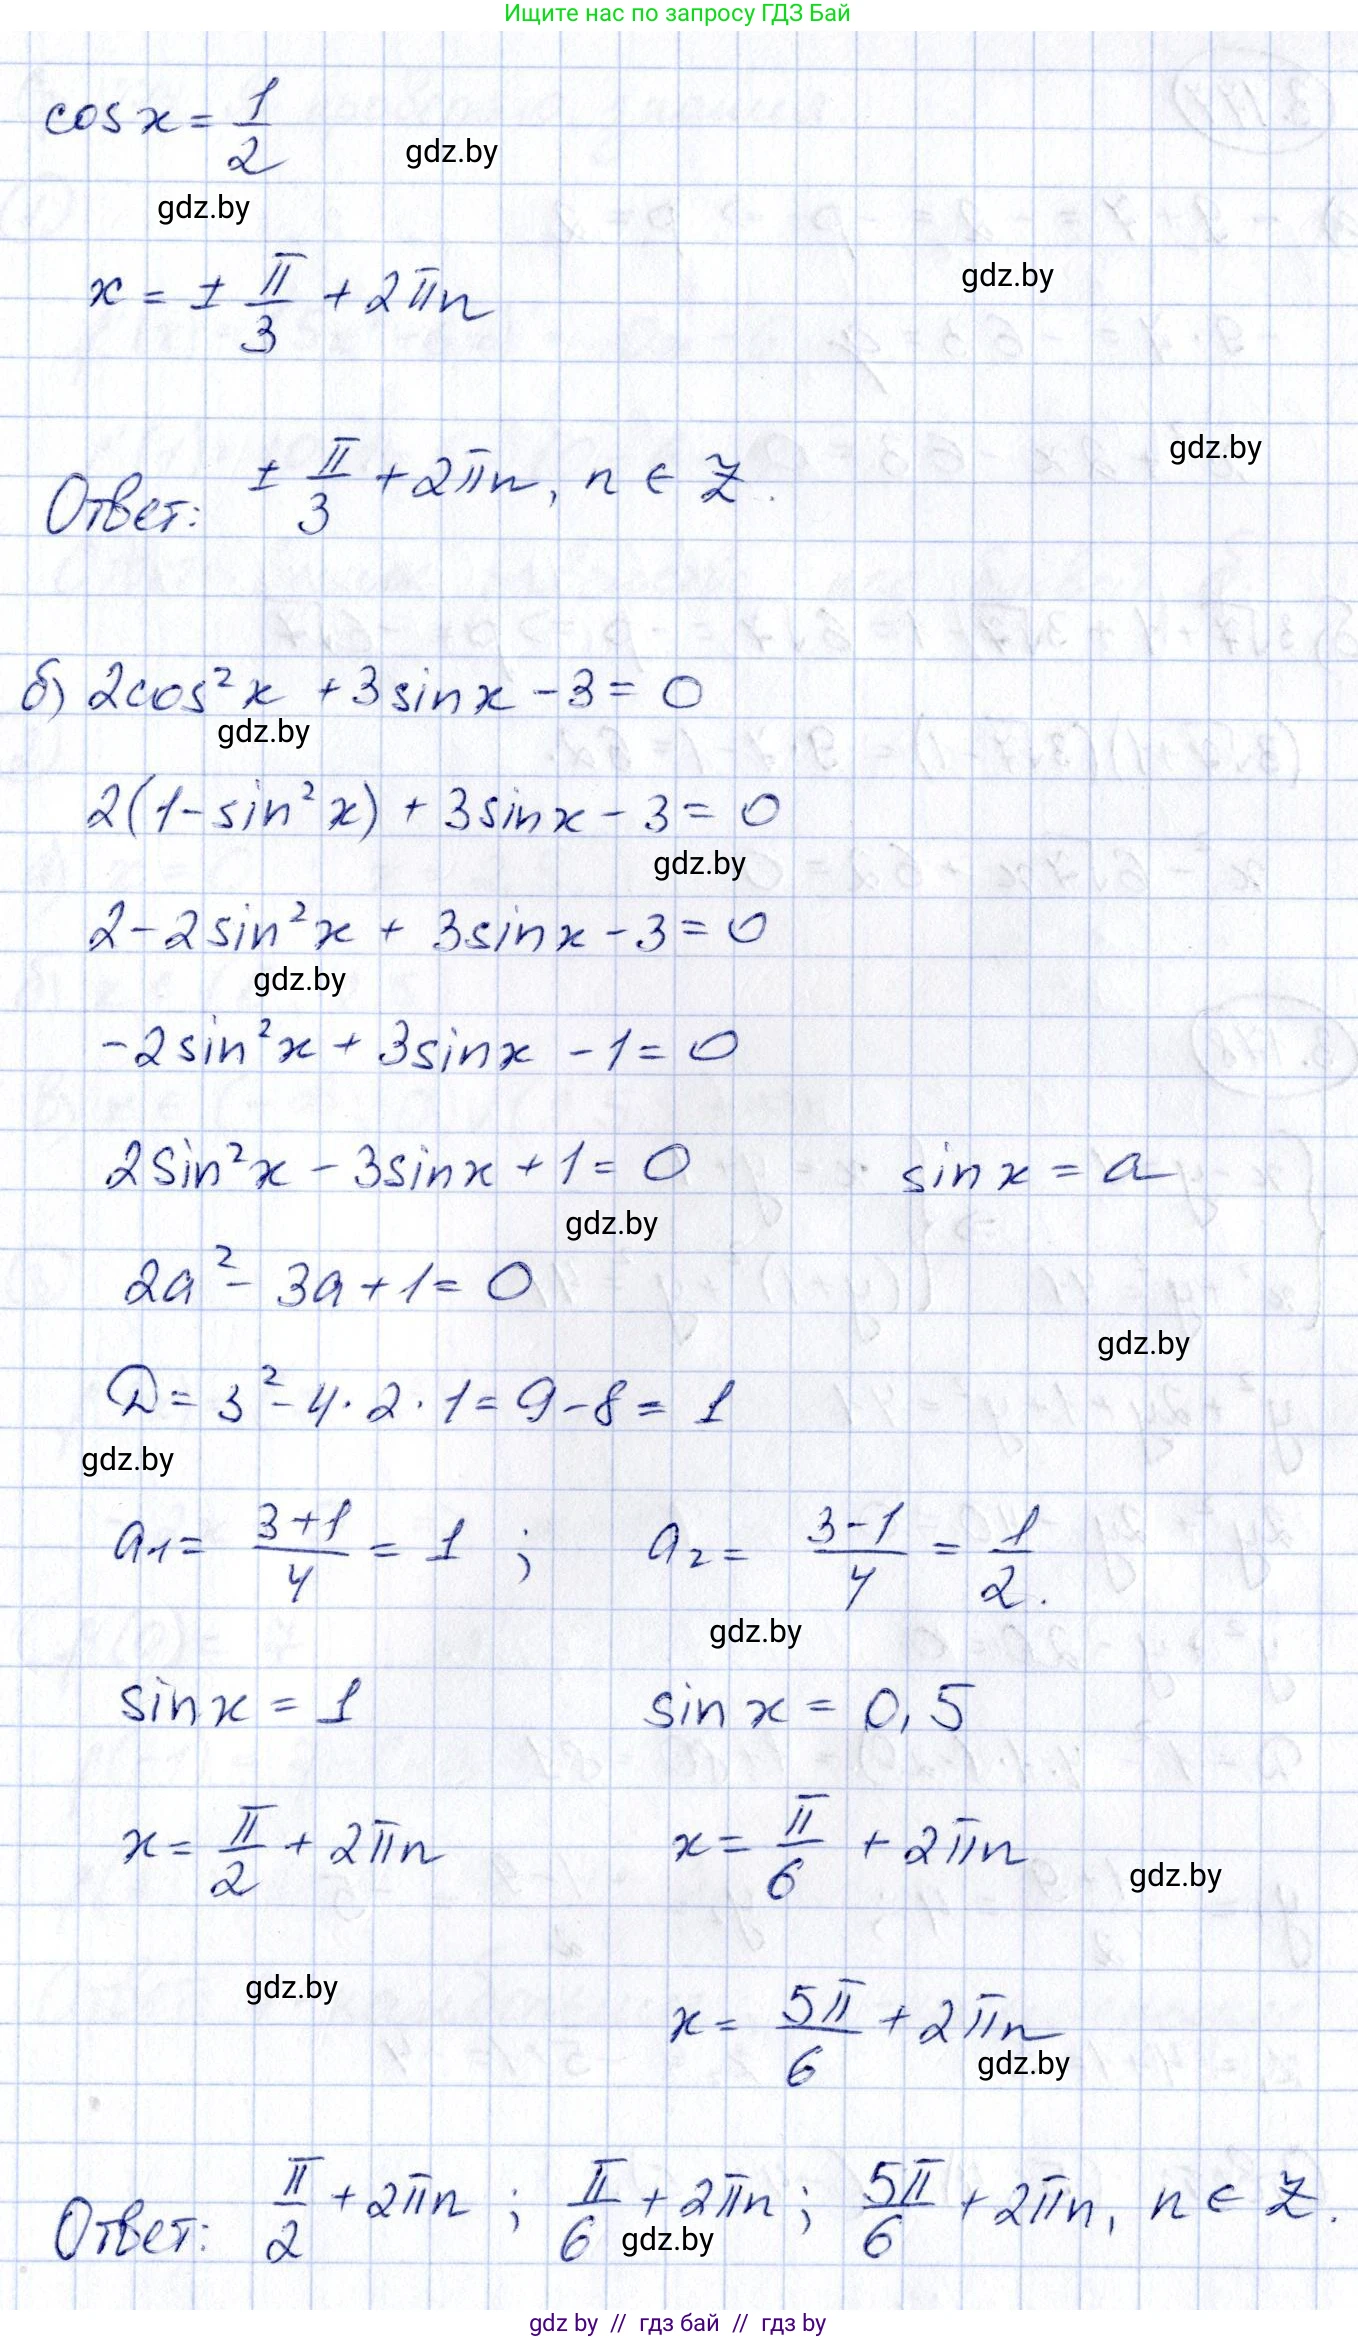 Ищите нас по запросу ГДЗ Бай
cos x = 1/2
gdz.by
gdz.by
x = ± π/3 + 2πn
gdz.by
gdz.by
Ответ: ± π/3 + 2πn, n ∈ Z.
б) 2cos²x + 3sinx - 3 = 0
gdz.by
2(1 - sin²x) + 3sinx - 3 = 0
gdz.by
2 - 2sin²x + 3sinx - 3 = 0
gdz.by
-2sin²x + 3sinx - 1 = 0
2sin²x - 3sinx + 1 = 0 sinx = a
gdz.by
2a² - 3a + 1 = 0
gdz.by
D = 3² - 4·2·1 = 9 - 8 = 1
gdz.by
a₁ = (3+1)/4 = 1 ; a₂ = (3-1)/4 = 1/2.
gdz.by
sinx = 1 sinx = 0,5
x = π/2 + 2πn x = π/6 + 2πn
gdz.by
gdz.by
x = 5π/6 + 2πn
gdz.by
Ответ: π/2 + 2πn ; π/6 + 2πn ; 5π/6 + 2πn, n ∈ Z.
gdz.by
gdz by // гдз бай // гдз by